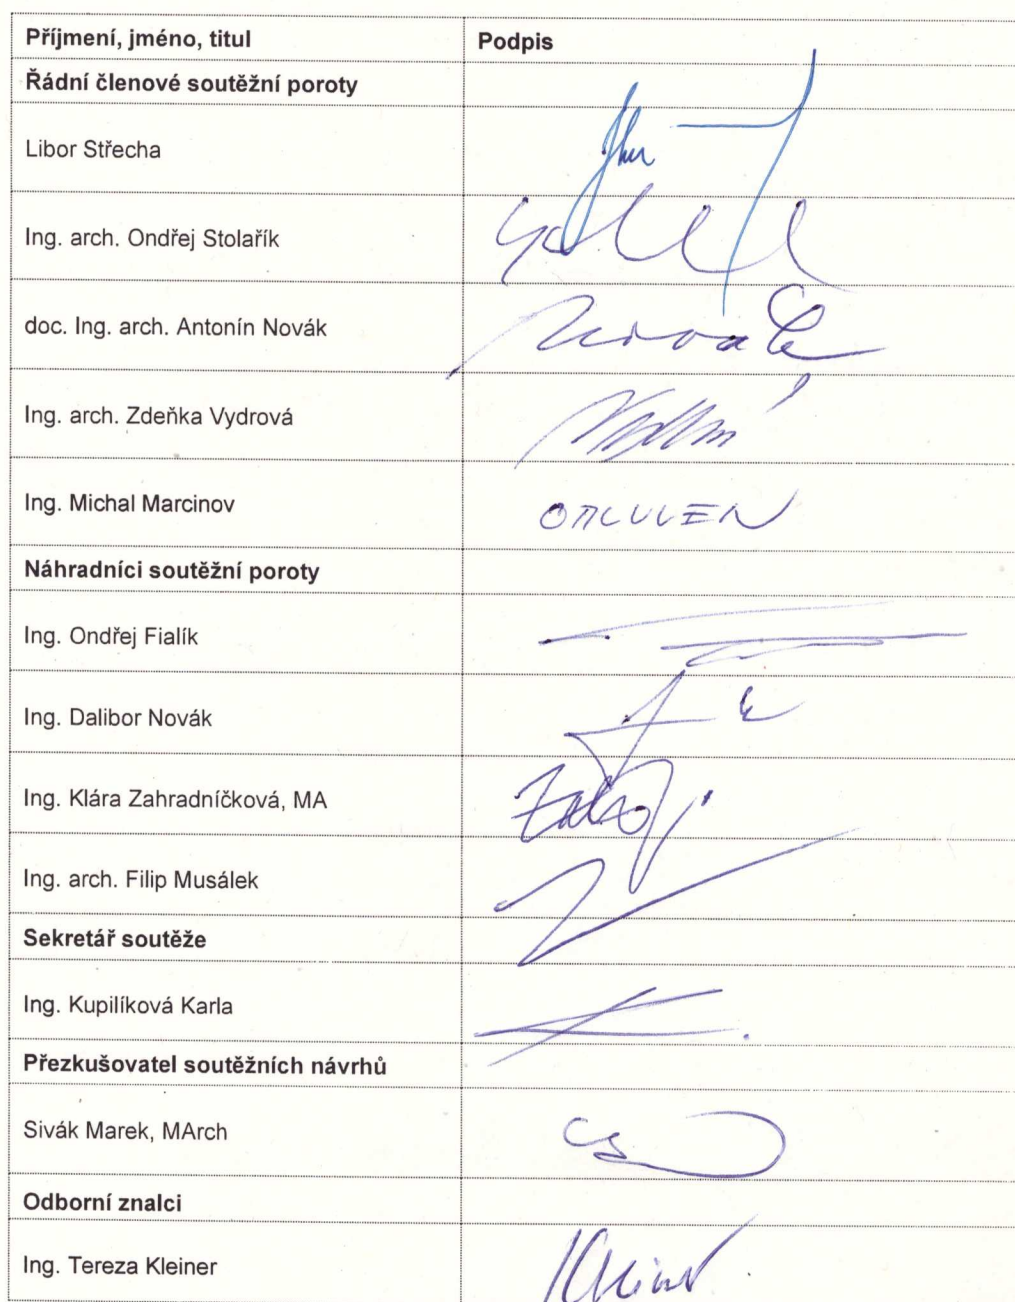 Příjmení, jméno, titul Podpis
Řádní členové soutěžní poroty
Libor Střecha
Ing. arch. Ondřej Stolařík
doc. Ing. arch. Antonín Novák Novák
Ing. arch. Zdeňka Vydrová
Ing. Michal Marcinov OMLUVEN
Náhradníci soutěžní poroty
Ing. Ondřej Fialík
Ing. Dalibor Novák
Ing. Klára Zahradníčková, MA
Ing. arch. Filip Musálek
Sekretář soutěže
Ing. Kupilíková Karla
Přezkušovatel soutěžních návrhů
Sivák Marek, MArch
Odborní znalci
Ing. Tereza Kleiner